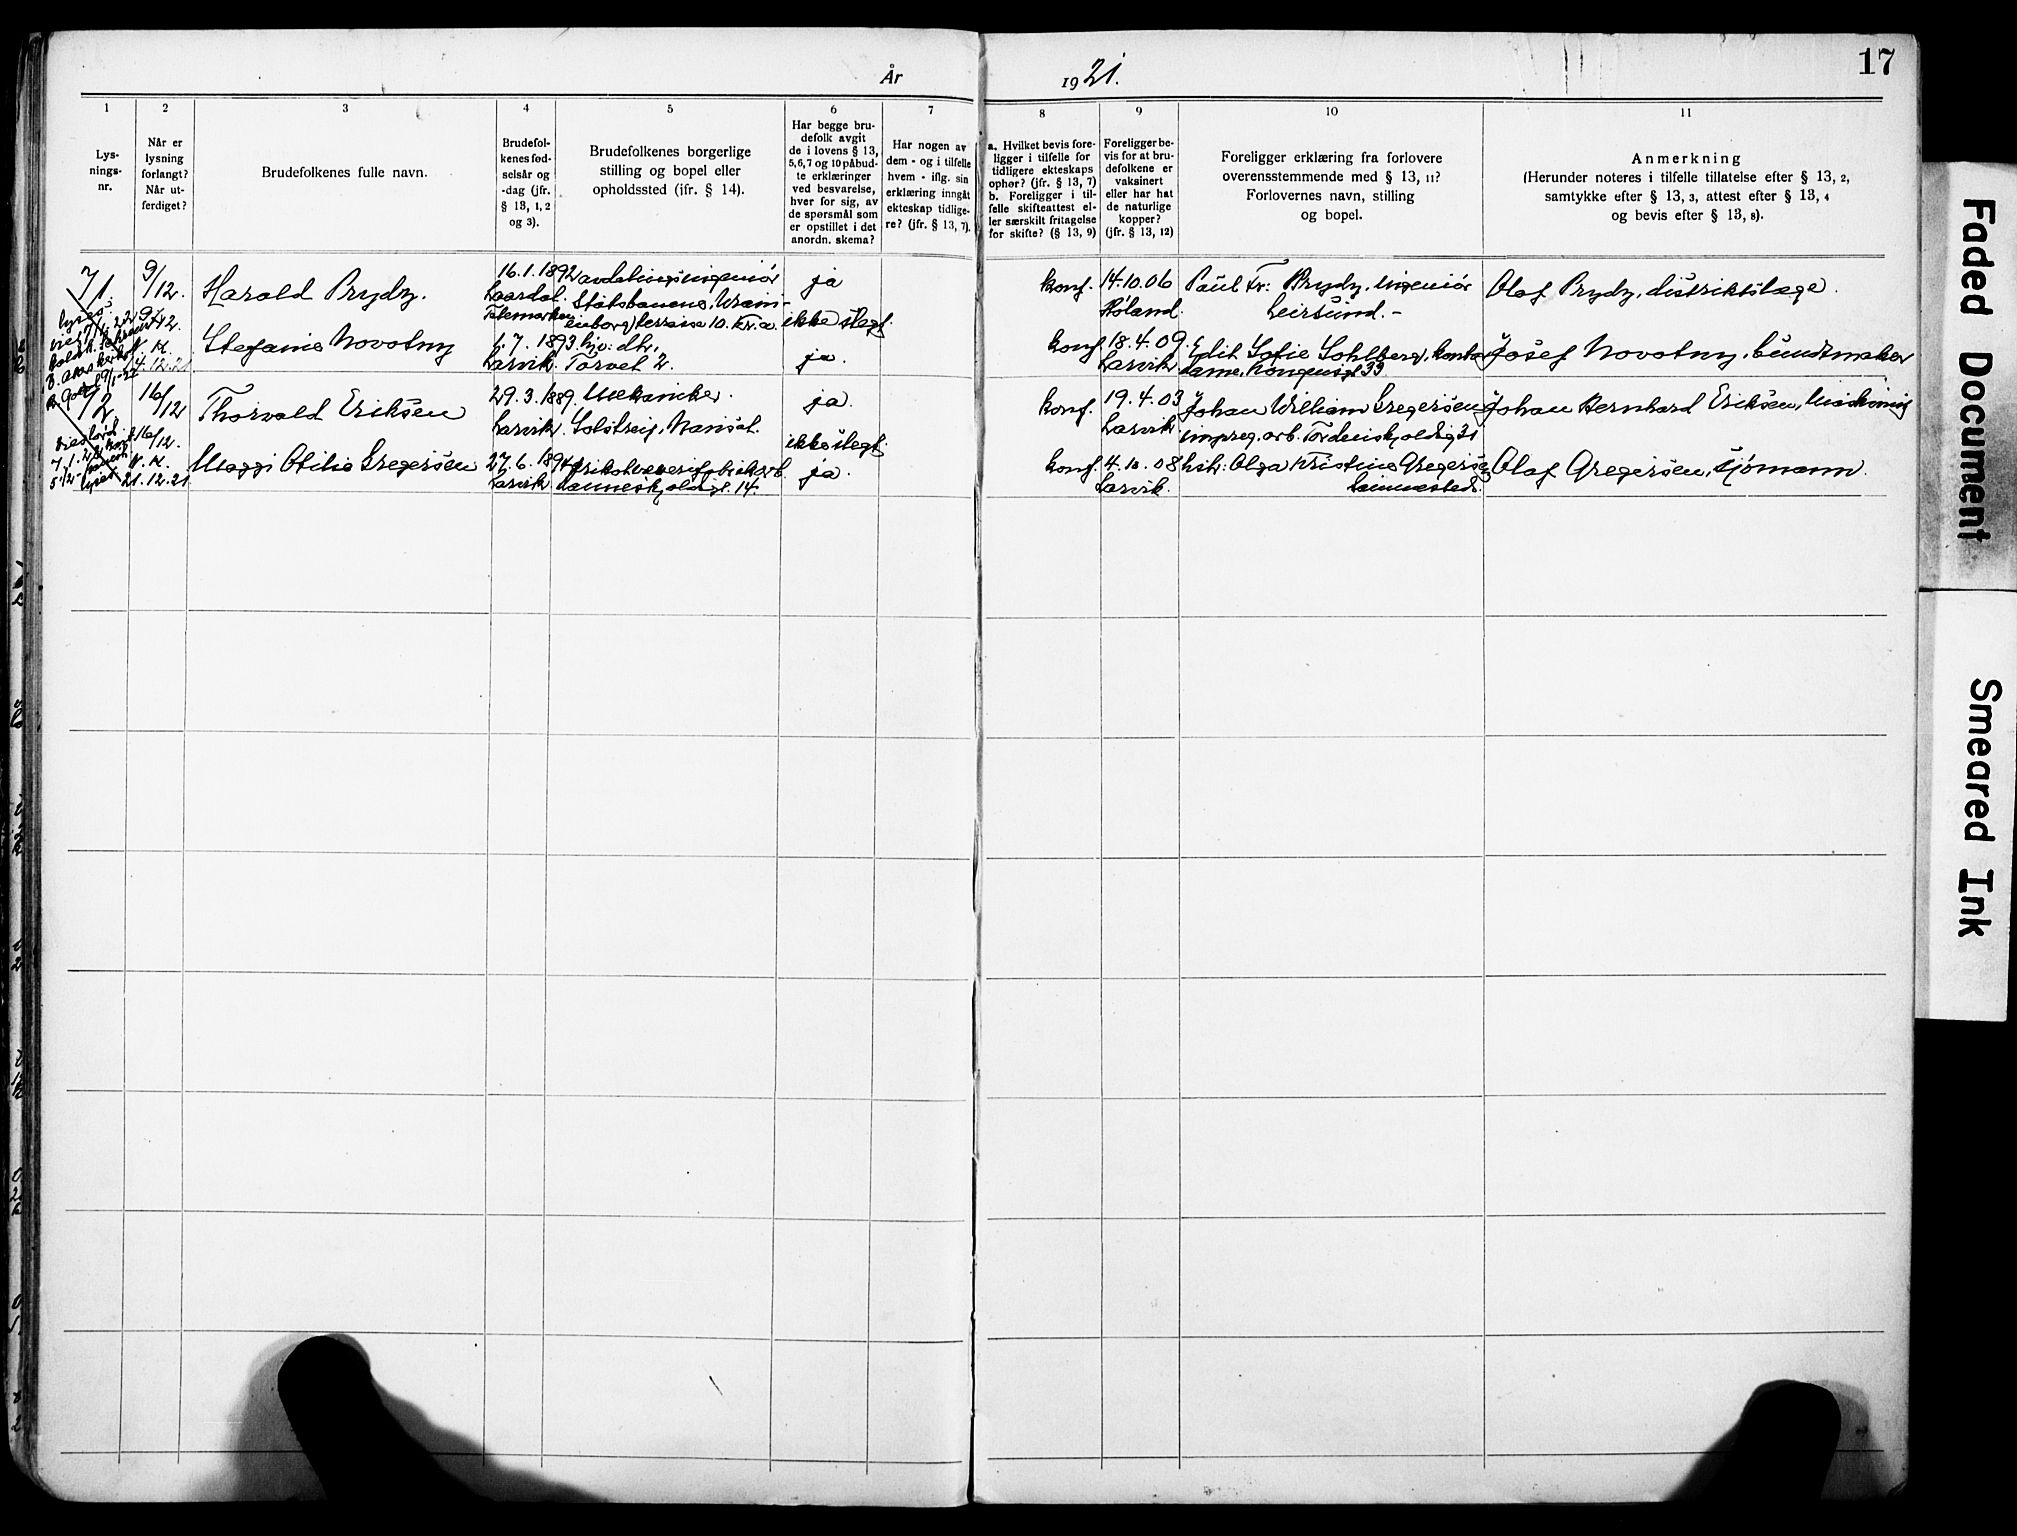 17
År 1921.
1 2 3 4 5 6 7 8 9 10 11
Lys-
nings-
nr.
Når er
lysning
forlangt?
Når ut-
ferdiget?
Brudefolkenes fulle navn.
Brudefol-
kenes fød-
selsår og
-dag (jfr.
§ 13, 1, 2
og 3).
Brudefolkenes borgerlige
stilling og bopel eller
opholdssted (jfr. § 14).
Har begge bru-
defolk avgit
de i lovens § 13,
5, 6, 7 og 10 påbud-
te erklæringer
ved besvarelse,
hver for sig, av
de spørsmål som
er opstillet i det
anordn. skema?
Har nogen av
dem - og i tilfelle
hvem - iflg. sin
erklæring inngåt
ekteskap tidlige-
re? (jfr. § 13, 7).
a. Hvilket bevis fore-
ligger i tilfelle for
tidligere ekteskaps
ophør? (jfr. § 13, 7)
b. Foreligger i til-
felle skifteattest el-
ler særskilt fritagelse
for skifte? (§ 13, 9)
Foreligger be-
vis for at bru-
defolkene er
vaksinert
eller har hat
de naturlige
kopper?
(jfr. § 13, 12)
Foreligger erklæring fra forlovere
overensstemmende med § 13, 11?
Forlovernes navn, stilling
og bopel.
Anmerkning
(Herunder noteres i tilfelle tillatelse efter § 13, 2,
samtykke efter § 13, 3, attest efter § 13, 4
og bevis efter § 13, 8).
71
9/12.
Harald Prydz.
16.1.1892
Laardal.
Telemarken
avdelingsingeniør
Statsbanene,
terrasse 10. Kr.a.
ja
ikke slegt.
konf.
14.10.06
Høland.
Paul Fr: Prydz, ingeniør
Leirsund. -
Olaf Prydz, distriktslæge.
lyses
9/12.
14.12.21
Stefanie Novotny
7.1893.
Larvik.
hjv: dtr.
Torvet 2.
ja.
konf.
18.4.09.
Larvik
Edit Sofie Sohlberg, kontor
dame, Kongensgt 33
Josef Novotny, buntmaker
72
16/12
Thorvald Eriksen
29.3.1889.
Larvik.
Mekaniker.
Solstreif, Nanset.
ja.
ikke slegt
konf.
19.4.03
Larvik
Johan William Gregersen
impreg. arb. Tordenskjoldsg 31
Johan Bernhard Eriksen,
16/12.
21.12.21
lyses
Maggi Otilie Gregersen
27.6.1894
Larvik
Danneskjoldsgt. 14.
ja.
konf.
4.10.08
Larvik.
hstr: Olga Kristine Gregersen
Olaf Gregersen, sjømann.
Faded Document
Smeared Ink